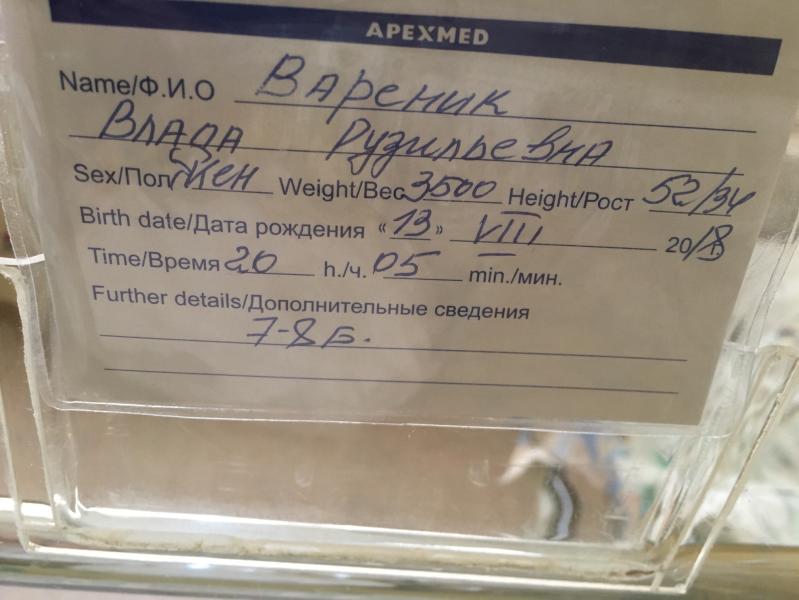 APEXMED
Name/Ф.И.О Вареник
Влада Рузильевна
Sex/Пол жен Weight/Вес 3500 Height/Рост 52/34
Birth date/Дата рождения «13» VIII 2018 г.
Time/Время 20 h./ч. 05 min./мин.
Further details/Дополнительные сведения
7-8 Б.